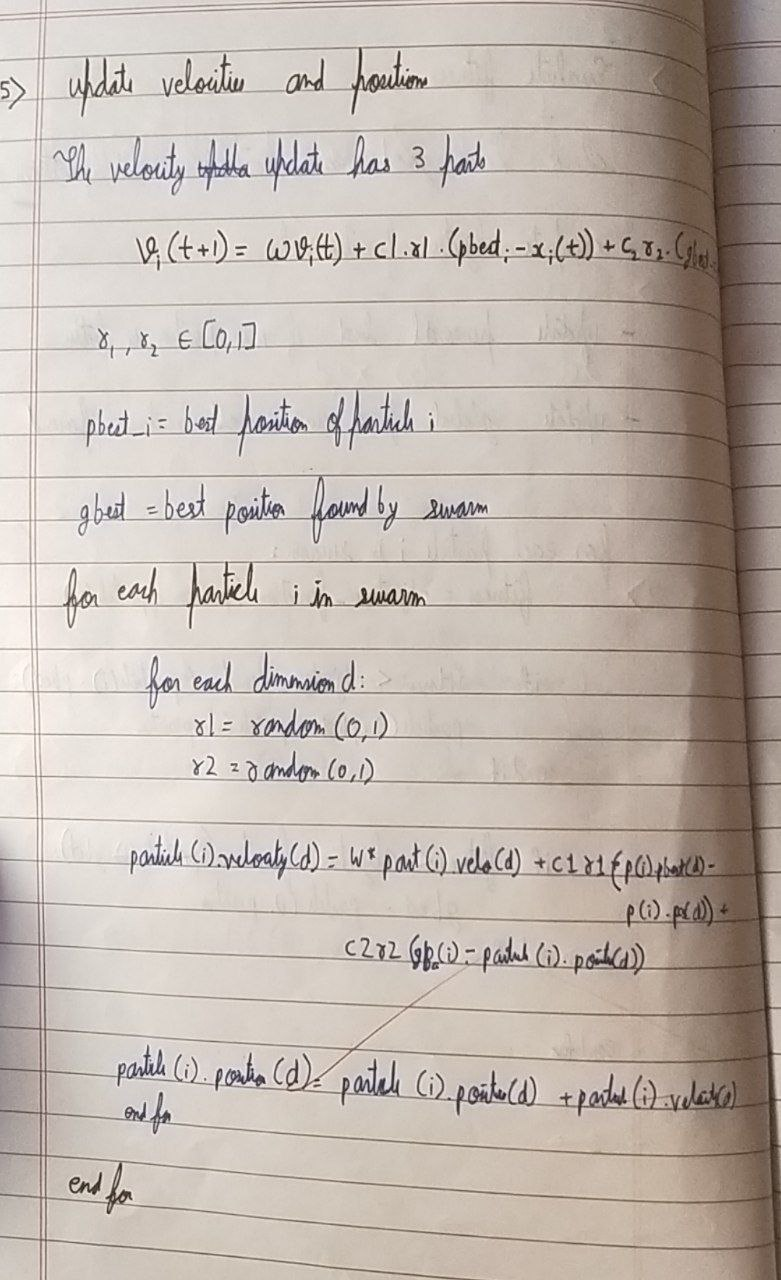 5> update velocities and positions
The velocity update has 3 parts
v_i(t+1) = ωv_i(t) + c1.r1.(pbest_i - x_i(t)) + c₂r₂.(gbest
r₁, r₂ ∈ [0,1]
pbest_i = best position of particle i
gbest = best position found by swarm
for each particle i in swarm
for each dimension d:
r1 = random (0,1)
r2 = random (0,1)
particle (i).velocity(d) = w* part(i).velo(d) + c1 r1 (p(i).pbest(d) -
p(i).po(d)) +
c2r2 (i) - particle (i). position(d))
particle (i). position (d) = particle (i).position(d) + particle(i).velocity(d)
end for
end for